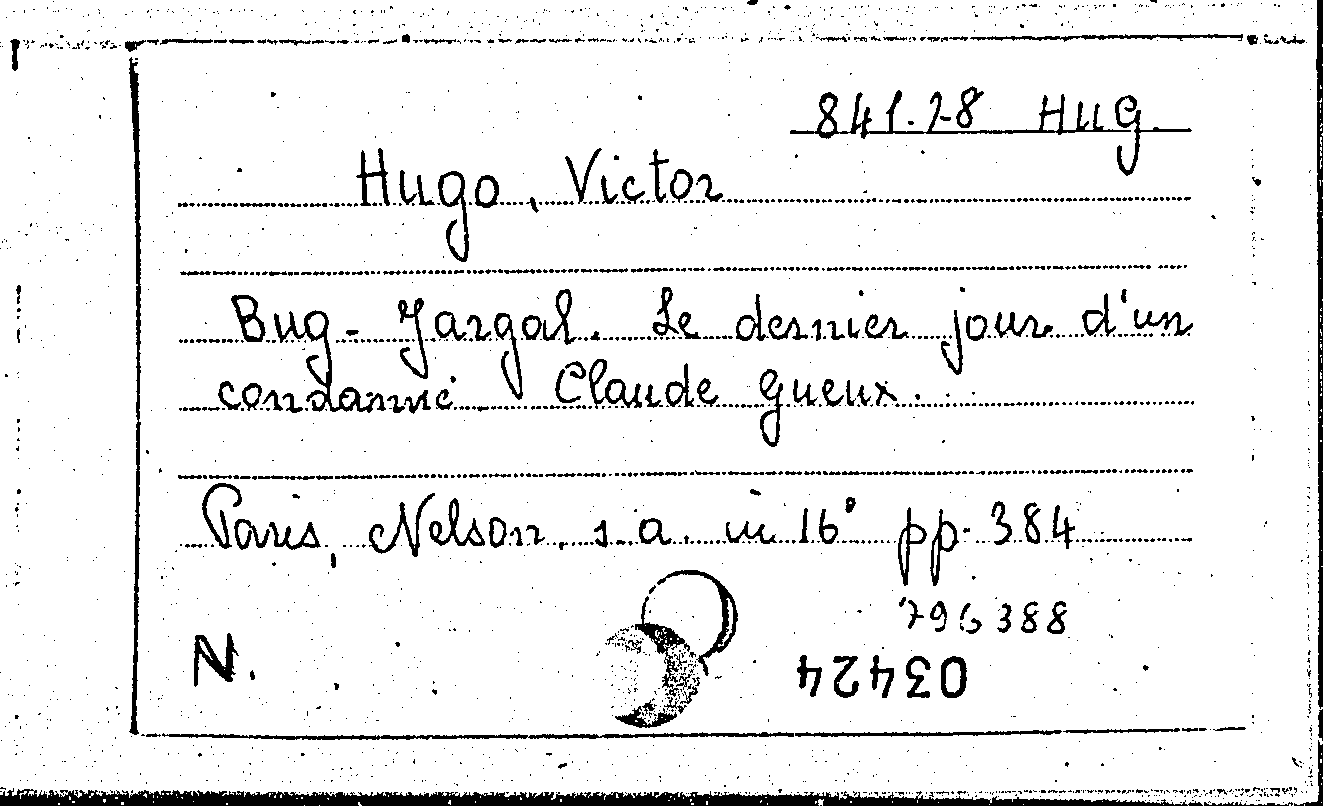 841.28 HUG
Hugo, Victor
Bug-Jargal. Le dernier jour d'un
condanné Claude Gueux.
Paris, Nelson, s.a. in 16° pp. 384
796388
N.
03424